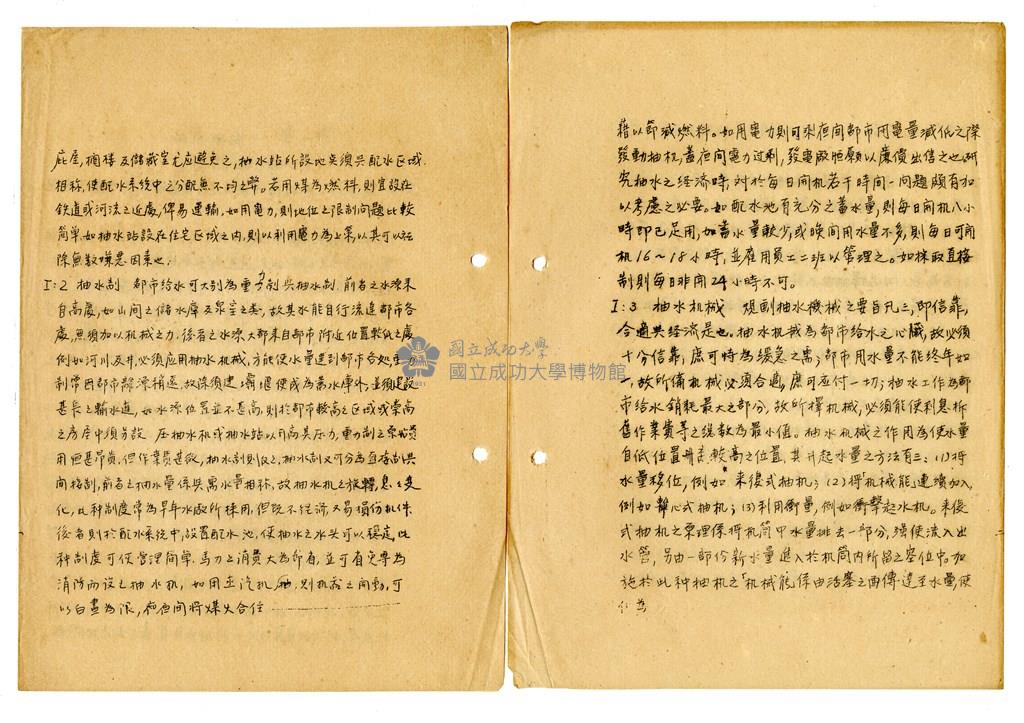 庇屋,樓及儲藏室尤应避免之,抽水站所設地矣須與配水区域
相称,使配水系統中之分配無不均之弊。若用煤為燃料,則宜設在
鉄道或河流之近處,俾易運輸,如用電力,則地位之限制問題比較
簡单.如抽水站設在住宅区域之内,則以利用電力為上策,以其可以祛
除無数燥患因素也.
I:2 抽水制. 都市給水可大别為重力制與抽水制.前者之水源来
自高處,如山间之儲水庫及泉室之类,故其水能自行流進都市各
處,無須加以机械之力.後者之水源大都来自都市附近位置較低之處
例如河川及井,必須应用抽水机械,方能使水量達到都市各処,重力
制常因都市離源稍遠,故除須建 堰使成為蓄水庫外,並須建設
甚長之輸水道,如水源位置並不甚高,則於都市較高之区域或崇高
之房屋中須另設 压抽水机或抽水站以高其压力,重力制之
用甚昂貴,但作業甚儉,抽水制則反之.抽水制又可分為直接制與
间接制,前者之抽水量係與需水量相称,故抽水机之旋轉,忽忽变
化,此种制度常為早年水廠所採用,但既不经济又易損伤机件.
後者則於配水系統中設置配水池,使抽水之水头可以穏定,此
种制度可使管理简单.馬力之消費大為節省,並可省免專為
消防而设之抽水机,如用蒸汽机,則机器之開動,可
以白晝為限,而夜间將煤火合住
藉以節减燃料。如用電力則可乘夜间都市用電量减低之際
發動抽机,蓋夜间電力过剩,發電廠恒願以廉價出售之也.研
究抽水之经濟時,对於每日開机若干時间一问題頗有加
以考慮之必要。如配水池有充分之蓄水量,則每日開机八小
時即已足用,如蓄水量較少,或晚间用水量不多,則每日可開
机16~18小時,並雇用員工二班以管理之。如採取直接
制則每日非開24小時不可。
I:3 抽水机械 規劃抽水機械之要旨凡三,即信靠,
合適與经濟是也.抽水机械為都市給水之心臟,故必須
十分信靠,庶可恃為緩急之需;都市用水量不能终年如
一,故所備机械必須合適,庶可应付一切;抽水工作為都
市給水銷耗最大之部分,故所擇机械,必須能使利息折
舊作業費等之總数為最小值。抽水机械之作用為使水量
自低位置升至較高之位置.其升起水量之方法有三:(1)將
水量移位,例如 来復式抽机;(2)將「机械能」連續加入
例如離心式抽机;(3)利用衝量,例如衝擊起水机。来復
式抽机之原理係將机筒中水量排去一部分,强使流入出
水管,另由一部份新水量進入於机筒内所留之空位中.加
施於此种抽机之「机械能」係由活塞之面傳達至水量,使
國立成功大學
國立成功大學博物館
1931